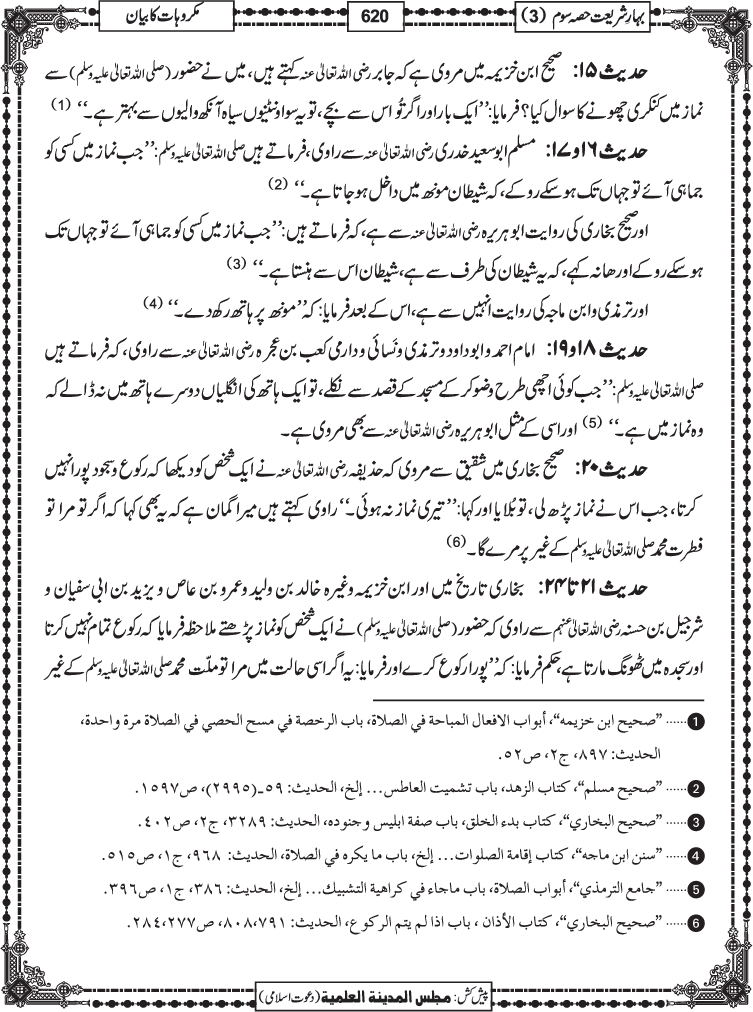 بہارِ شریعت حصہ سوم (3)
620
مکروہات کا بیان
حدیث ۱۵: صحیح ابن خزیمہ میں مروی ہے کہ جابر رضی اللہ تعالیٰ عنہ کہتے ہیں، میں نے حضور (صلی اللہ تعالیٰ علیہ وسلم) سے
نماز میں کنکری چھونے کا سوال کیا؟ فرمایا: ’’ایک بار اور اگر تُو اس سے بچے، تو یہ سو اونٹنیوں سیاہ آنکھ والیوں سے بہتر ہے۔‘‘ (1)
حدیث ۱۶ و ۱۷: مسلم ابو سعید خدری رضی اللہ تعالیٰ عنہ سے راوی، فرماتے ہیں صلی اللہ تعالیٰ علیہ وسلم: ’’جب نماز میں کسی کو
جماہی آئے تو جہاں تک ہو سکے روکے، کہ شیطان مونھ میں داخل ہو جاتا ہے۔‘‘ (2)
اور صحیح بخاری کی روایت ابو ہریرہ رضی اللہ تعالیٰ عنہ سے ہے، کہ فرماتے ہیں: ’’جب نماز میں کسی کو جماہی آئے تو جہاں تک
ہو سکے روکے اور ھا نہ کہے، کہ یہ شیطان کی طرف سے ہے، شیطان اس سے ہنستا ہے۔‘‘ (3)
اور ترمذی و ابن ماجہ کی روایت انہیں سے ہے، اس کے بعد فرمایا: کہ ’’مونھ پر ہاتھ رکھ دے۔‘‘ (4)
حدیث ۱۸ و ۱۹: امام احمد و ابو داود و ترمذی و نَسائی و دارمی کعب بن عجرہ رضی اللہ تعالیٰ عنہ سے راوی، کہ فرماتے ہیں
صلی اللہ تعالیٰ علیہ وسلم: ’’جب کوئی اچھی طرح وضو کر کے مسجد کے قصد سے نکلے، تو ایک ہاتھ کی انگلیاں دوسرے ہاتھ میں نہ ڈالے کہ
وہ نماز میں ہے۔‘‘ (5) اور اسی کے مثل ابو ہریرہ رضی اللہ تعالیٰ عنہ سے بھی مروی ہے۔
حدیث ۲۰: صحیح بخاری میں شقیق سے مروی کہ حذیفہ رضی اللہ تعالیٰ عنہ نے ایک شخص کو دیکھا کہ رکوع و سجود پورا نہیں
کرتا، جب اس نے نماز پڑھ لی، تو بُلایا اور کہا: ’’تیری نماز نہ ہوئی۔‘‘ راوی کہتے ہیں میرا گمان ہے کہ یہ بھی کہا کہ اگر تو مرا تو
فطرت محمد صلی اللہ تعالیٰ علیہ وسلم کے غیر پر مرے گا۔ (6)
حدیث ۲۱ تا ۲۴: بخاری تاریخ میں اور ابن خزیمہ وغیرہ خالد بن ولید و عمرو بن عاص و یزید بن ابی سفیان و
شرجیل بن حسنہ رضی اللہ تعالیٰ عنہم سے راوی کہ حضور (صلی اللہ تعالیٰ علیہ وسلم) نے ایک شخص کو نماز پڑھتے ملاحظہ فرمایا کہ رکوع تمام نہیں کرتا
اور سجدہ میں ٹھونگ مارتا ہے، حکم فرمایا: کہ ’’پورا رکوع کرے اور فرمایا: یہ اگر اسی حالت میں مرا تو ملّت محمد صلی اللہ تعالیٰ علیہ وسلم کے غیر
1 ...... ”صحيح ابن خزيمه“، أبواب الافعال المباحة في الصلاة، باب الرخصة في مسح الحصي في الصلاة مرة واحدة،
الحديث: ٨٩٧، ج٢، ص٥٢.
2 ...... ”صحيح مسلم“، كتاب الزهد، باب تشميت العاطس... إلخ، الحديث: ٥٩-(٢٩٩٥)، ص١٥٩٧.
3 ...... ”صحيح البخاري“، كتاب بدء الخلق، باب صفة ابليس وجنوده، الحديث: ٣٢٨٩، ج٢، ص٤٠٢.
4 ...... ”سنن ابن ماجه“، كتاب إقامة الصلوات... إلخ، باب ما يكره في الصلاة، الحديث: ٩٦٨، ج١، ص٥١٥.
5 ...... ”جامع الترمذي“، أبواب الصلاة، باب ماجاء في كراهية التشبيك... إلخ، الحديث: ٣٨٦، ج١، ص٣٩٦.
6 ...... ”صحيح البخاري“، كتاب الأذان ، باب اذا لم يتم الركوع، الحديث: ٨٠٨،٧٩١، ص٢٨٤،٢٧٧.
پیش کش: مجلس المدينة العلمية (دعوت اسلامی)